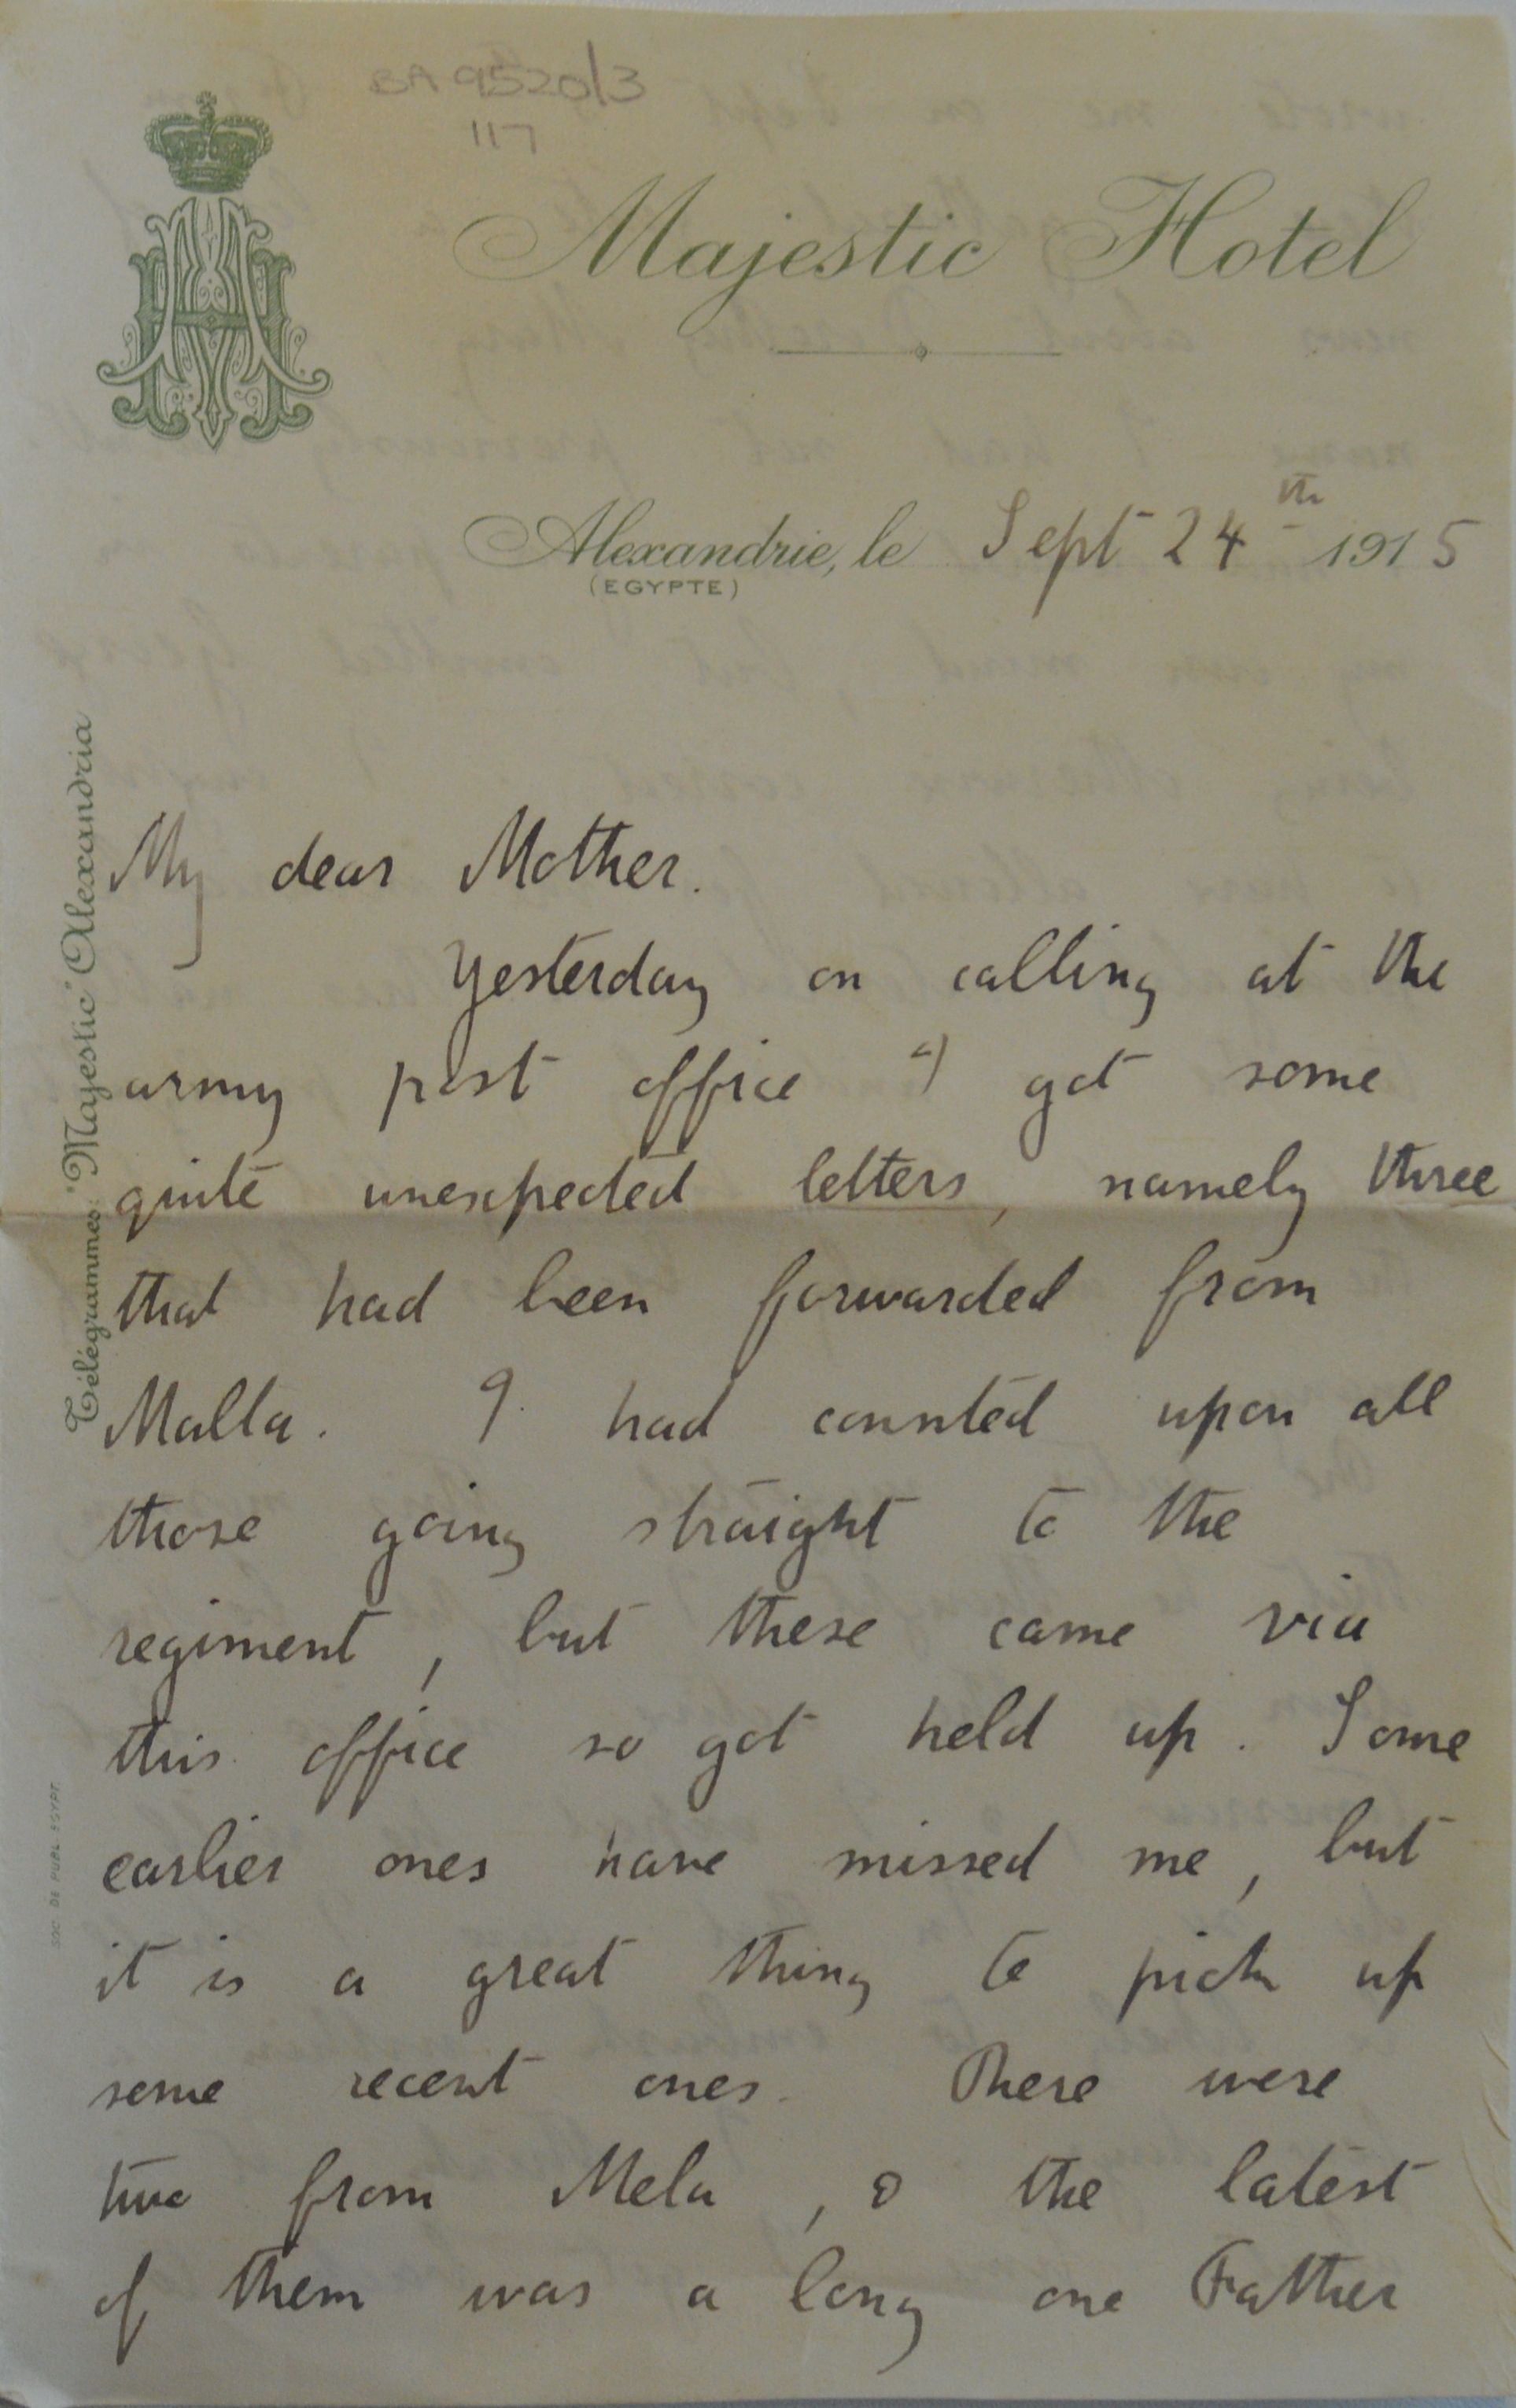 BA 9520/3
117
Majestic Hotel
Alexandrie, le Sept 24th 1915
(EGYPTE)
Télégrammes: "Majestic" Alexandria
My dear Mother.
Yesterday on calling at the
army post office I got some
quite unexpected letters, namely three
that had been forwarded from
Malta. I had counted upon all
those going straight to the
regiment, but these came via
this office so got held up. Some
earlier ones have missed me, but
it is a great thing to pick up
some recent ones. There were
two from Mela, & the latest
of them was a long one Father
SOC DE PUBL EGYPT